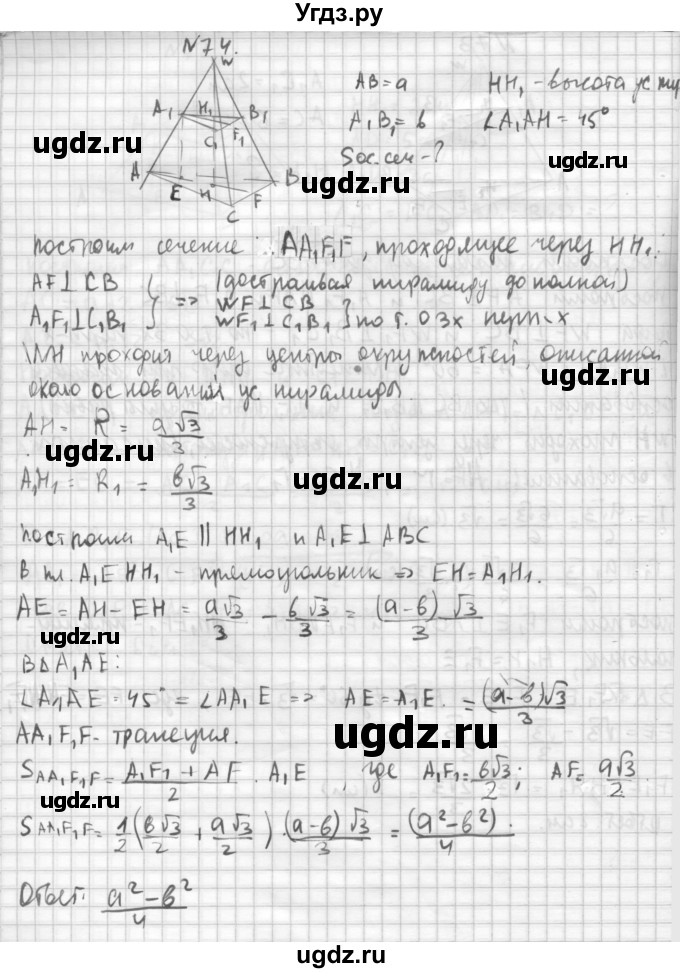 Угдз.ру
N 74.
W
A₁ H₁ B₁
C₁ F₁
A E H B
C F
AB = a HH₁ - высота ус пир
A₁B₁ = b ∠A₁AH = 45°
Sос.сеч - ?
ugdz.ru ugdz.ru
ugdz.ru
построим сечение AA₁F₁F, проходящее через HH₁.
AF ⊥ CB } => (достраивая пирамиду до полной)
A₁F₁ ⊥ C₁B₁ WF ⊥ CB
WF₁ ⊥ C₁B₁ } по т. о 3х перп-х
WH проходит через центры окружностей, описанной
ugdz.ru
около оснований ус пирамиды.
AH = R = a√3/3
ugdz.ru
A₁H₁ = R₁ = b√3/3
ugdz.ru
построим A₁E || HH₁ и A₁E ⊥ ABC
В пл. A₁EHH₁ - прямоугольник => EH = A₁H₁.
AE = AH - EH = a√3/3 - b√3/3 = (a-b)√3/3
ugdz.ru ugdz.ru
В Δ A₁AE:
∠A₁AE = 45° = ∠AA₁E => AE = A₁E = (a-b)√3/3
AA₁F₁F - трапеция.
ugdz.ru
S AA₁F₁F = (A₁F₁ + AF)/2 · A₁E, где A₁F₁ = b√3/2; AF = a√3/2.
ugdz.ru
S AA₁F₁F = 1/2 (b√3/2 + a√3/2) · (a-b)√3/3 = (a²-b²)/4.
ugdz.ru
Ответ: a²-b²/4
ugdz.ru
ugdz.ru